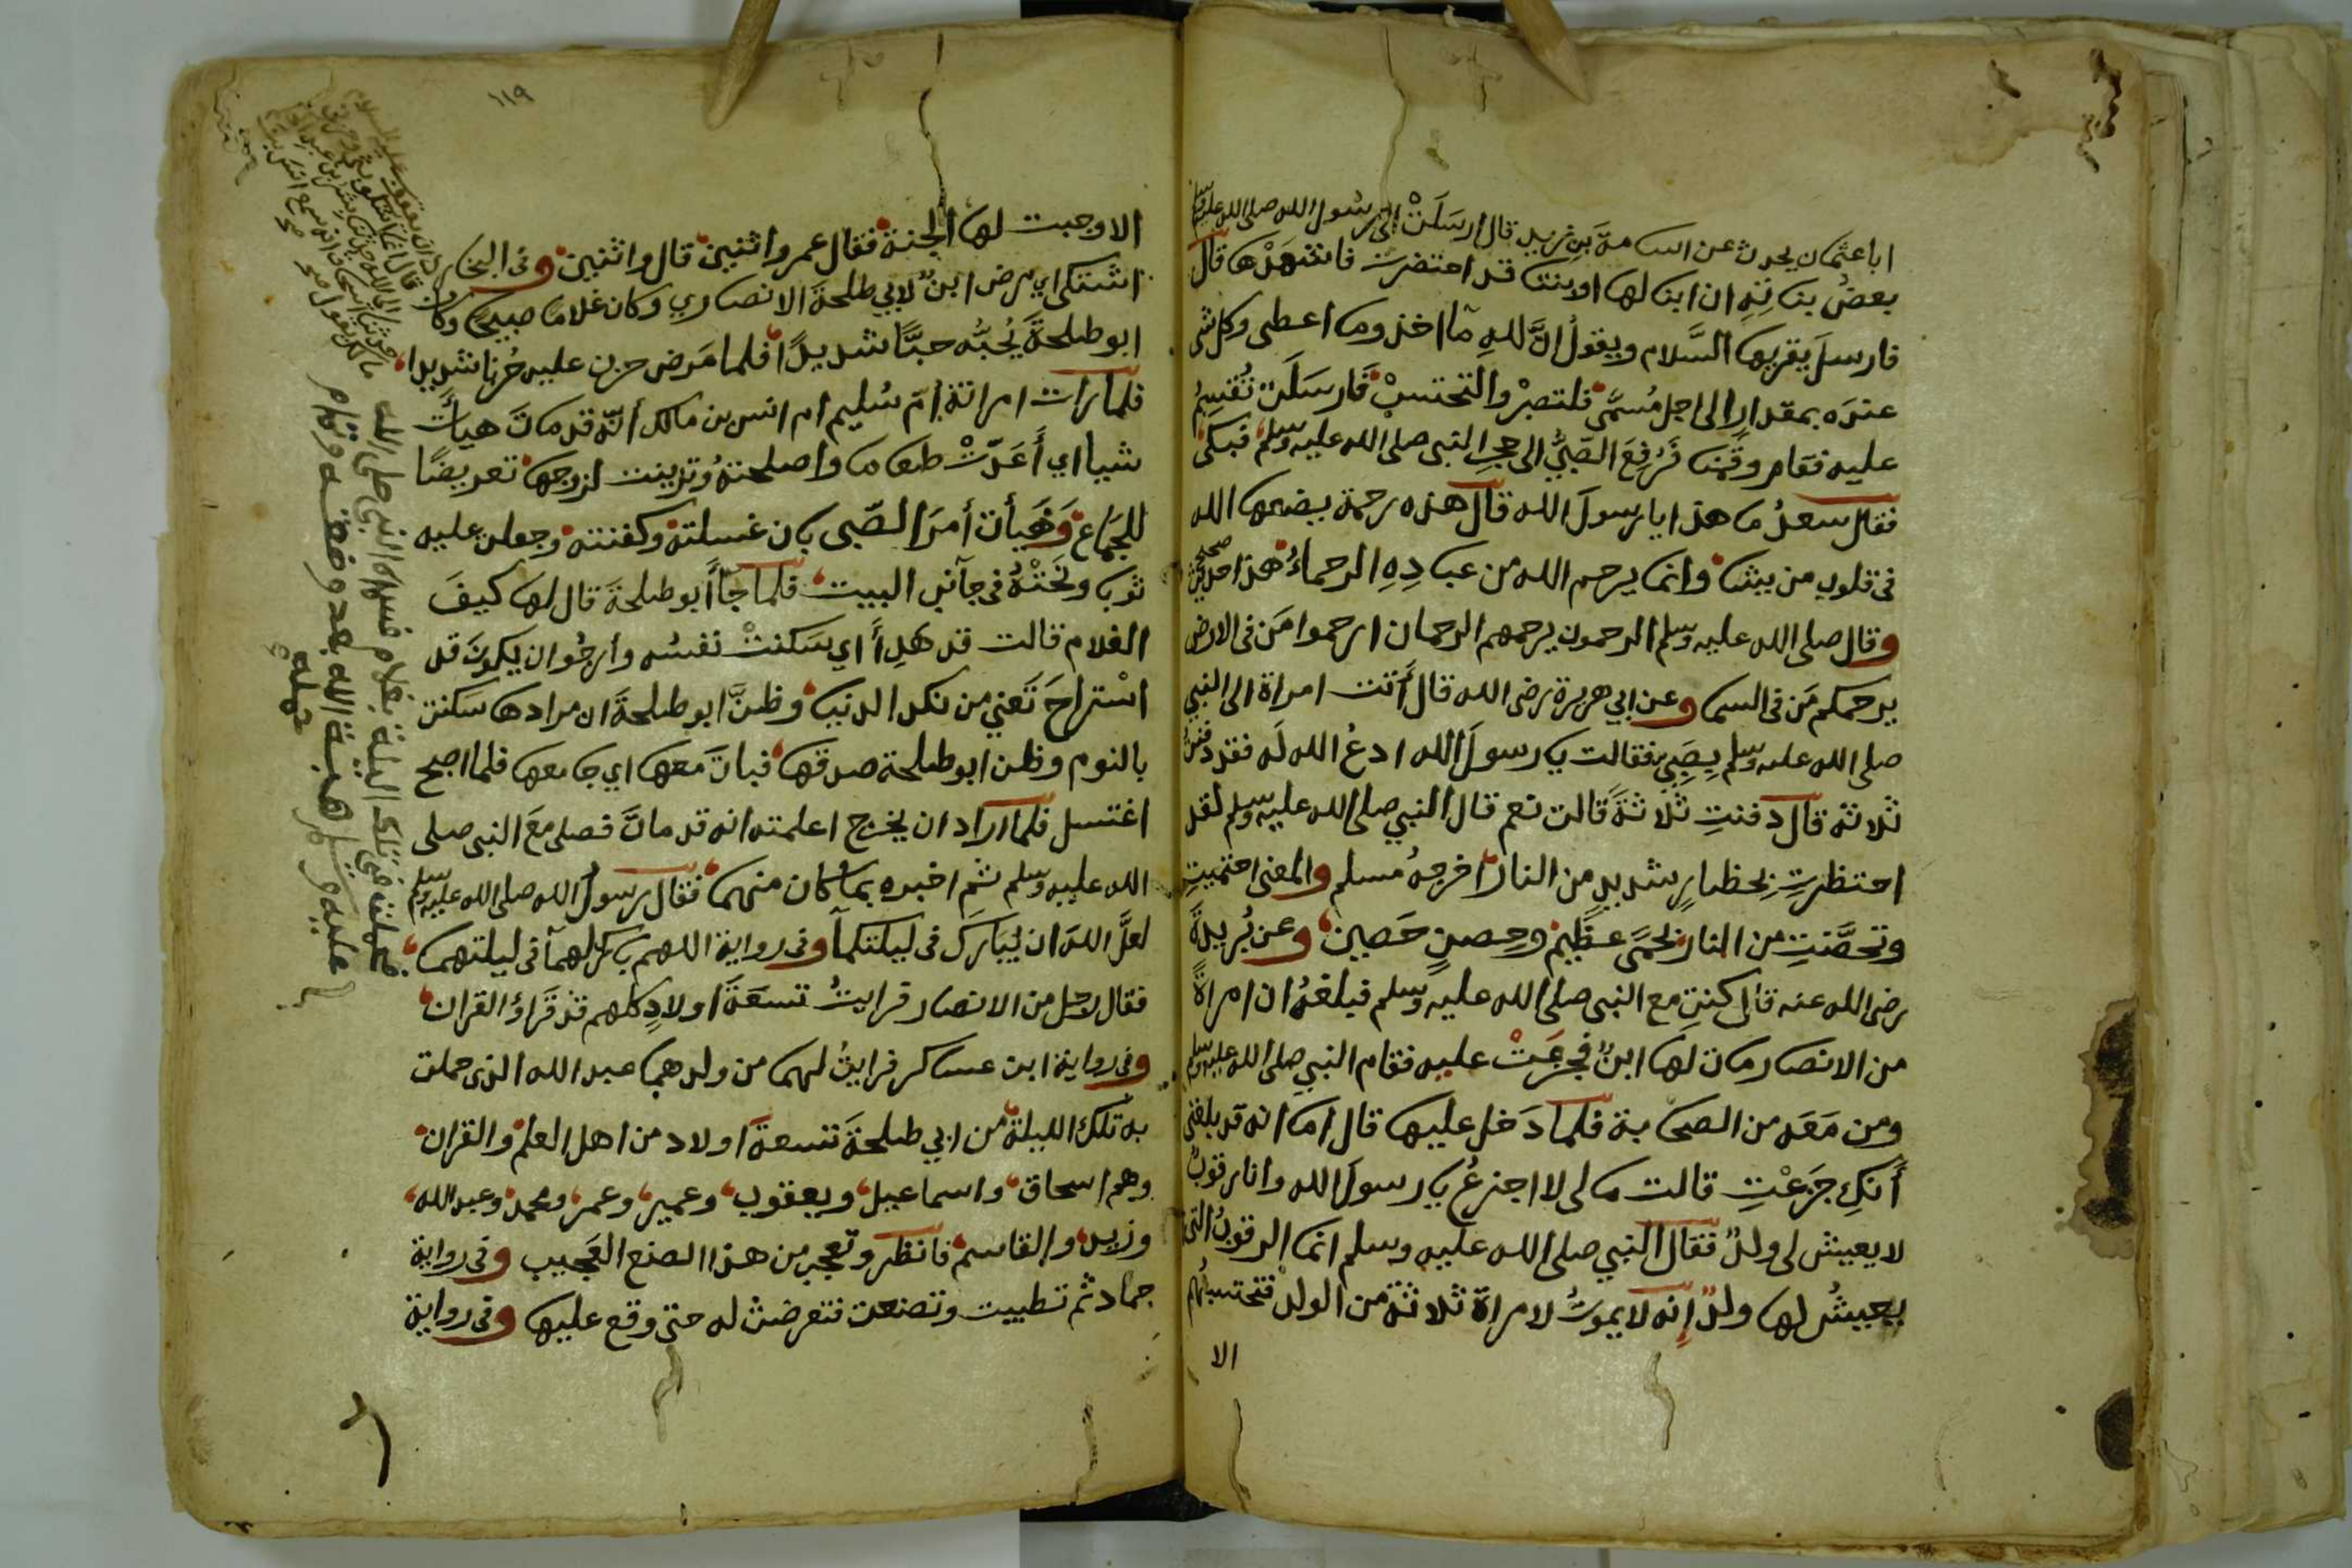 ابا عثمان يحدث عن اسامة بن زيد قال ارسَلَتْ الى رسول الله صلى الله عليه وسلم
بعضُ بناتِهِ ان ابنا لها او ابنتا قد احتضرت فاشهدْها قال
فارسلَ يقريها السَّلام ويقولُ انَّ للهِ مآ اخذ وما اعطى وكل شى
عندَه بمقدار الى اجل مُسمًّى فلتصبرْ والتحتسبْ فَارسَلَت تُقسِمُ
عليه فقام وقُمنا فَرُفِعَ الصَّبيُّ الى حجرِ النبى صلى الله عليه وسلم فبكى
فقال سعدُ ما هذا يا رسولَ الله قال هذه رحمة يضعها الله
فى قلوب من يشا وانما يرحم الله من عبادِهِ الرحماءُ هذا حديث صحيح
وقال صلى الله عليه وسلم الرحمون يرحمهم الرحمان ارحموا مَن فى الارض
يرحمكم مَن فى السما وعن ابي هريرة رضى الله قال أَتت امراة الى النبي
صلى الله عليه وسلم بِصَبِيٍ فقالت يا رسولَ الله ادعُ الله لَه فقد دفنتُ
ثلاثة قال دفنتِ ثلاثةً قالت نعم قال النبي صلى الله عليه وسلم لقد
احتظرتِ بحظارٍ شديدٍ من النار اخرجهُ مسلم والمعنى احتميتِ
وتحصَّنتِ من النار بحمىً عظيم وحِصنٍ حَصينٍ وعن بُريدةَ
رضى الله عنه قال كنت مع النبى صلى الله عليه وسلم فبلغهُ ان امراةً
من الانصار مات لَها ابنٌ فجزعَتْ عليه فقام النبي صلى الله عليه وسلم
ومن مَعَه من الصحابة فلما دَخل عليها قال اما انه قد بلغنى
أَنكِ جزَعْتِ قالت ما لى لا اجزعُ يا رسولَ الله وانا رقوبٌ
لا يعيش لى ولدٌ فقال النبي صلى الله عليه وسلم انما الرقوبُ التى
يعيشُ لها ولدٌ إنه لا يموتُ لامراة ثلاثة من الولد فتحتسبُهُم
الا
١١٩
الا وجبت لها الجنة فقال عمر واثنين قال واثنين وفى البخارى
اشتكى اي مرض ابنٌ لابي طلحةَ الانصاري وكان غلاما صبيحًا وكان
ابو طلحةَ يُحبُّه حبًّا شديدًا فلما مَرض حزن عليه حُزنا شديدا
فلما رات امراتة امّ سُليم ام انس بن مالك أنّه قد ماتَ هيأَت
شيا اي أَعَدّتْ طعاما واصلحتهُ وتزينت لزوجها تعريضًا
للجماع وَهَيأت أمرَ الصّبى بان غسلته وكفنته وجعلت عليه
ثوبا ونَحَتْهُ فى جآنبِ البيت فلما جآأَ ابو طلحةَ قال لها كيفَ
الغلام قالت قد هَدأَ اي سَكنتْ نفسُه وأرجُوا ان يكونَ قد
اسْتراحَ تَعني من نكد الدنيا وظنَّ ابو طلحةَ ان مرادها سَكنت
بالنوم وظن ابو طلحة صدقها فباتَ معها اي جامعها فلما اصبح
اغتسل فلما اراد ان يخرج اعلمته انه قد ماتَ فصلى معَ النبى صلى
الله عليه وسلم ثم اخبره بما كان منهما فقال رسولُ الله صلى الله عليه وسلم
لعلَّ اللهَ ان يُبَاركَ فى ليلتكمآ وفى رواية اللهم بارك لهمآ فى ليلتهما
فقال رجل من الانصار فرايتُ تسعَةَ اولادٍ كلهم قد قَراؤ القران
وفى رواية ابن عساكر فرايتُ لهما من ولدهما عبد الله الذى حملت
به تلك الليلة من ابي طلحةَ تسعةَ اولاد من اهل العلم والقران
وهم اسحاق واسماعيل ويعقوب وعمير وعمر ومحمد وعبد الله
وزيد والقاسم فانظر وتعجب من هذا الصنع العَجيب وفى رواية
حماد ثم تطيبت وتصنعت فتعرضت له حتى وقع عليها وفى رواية